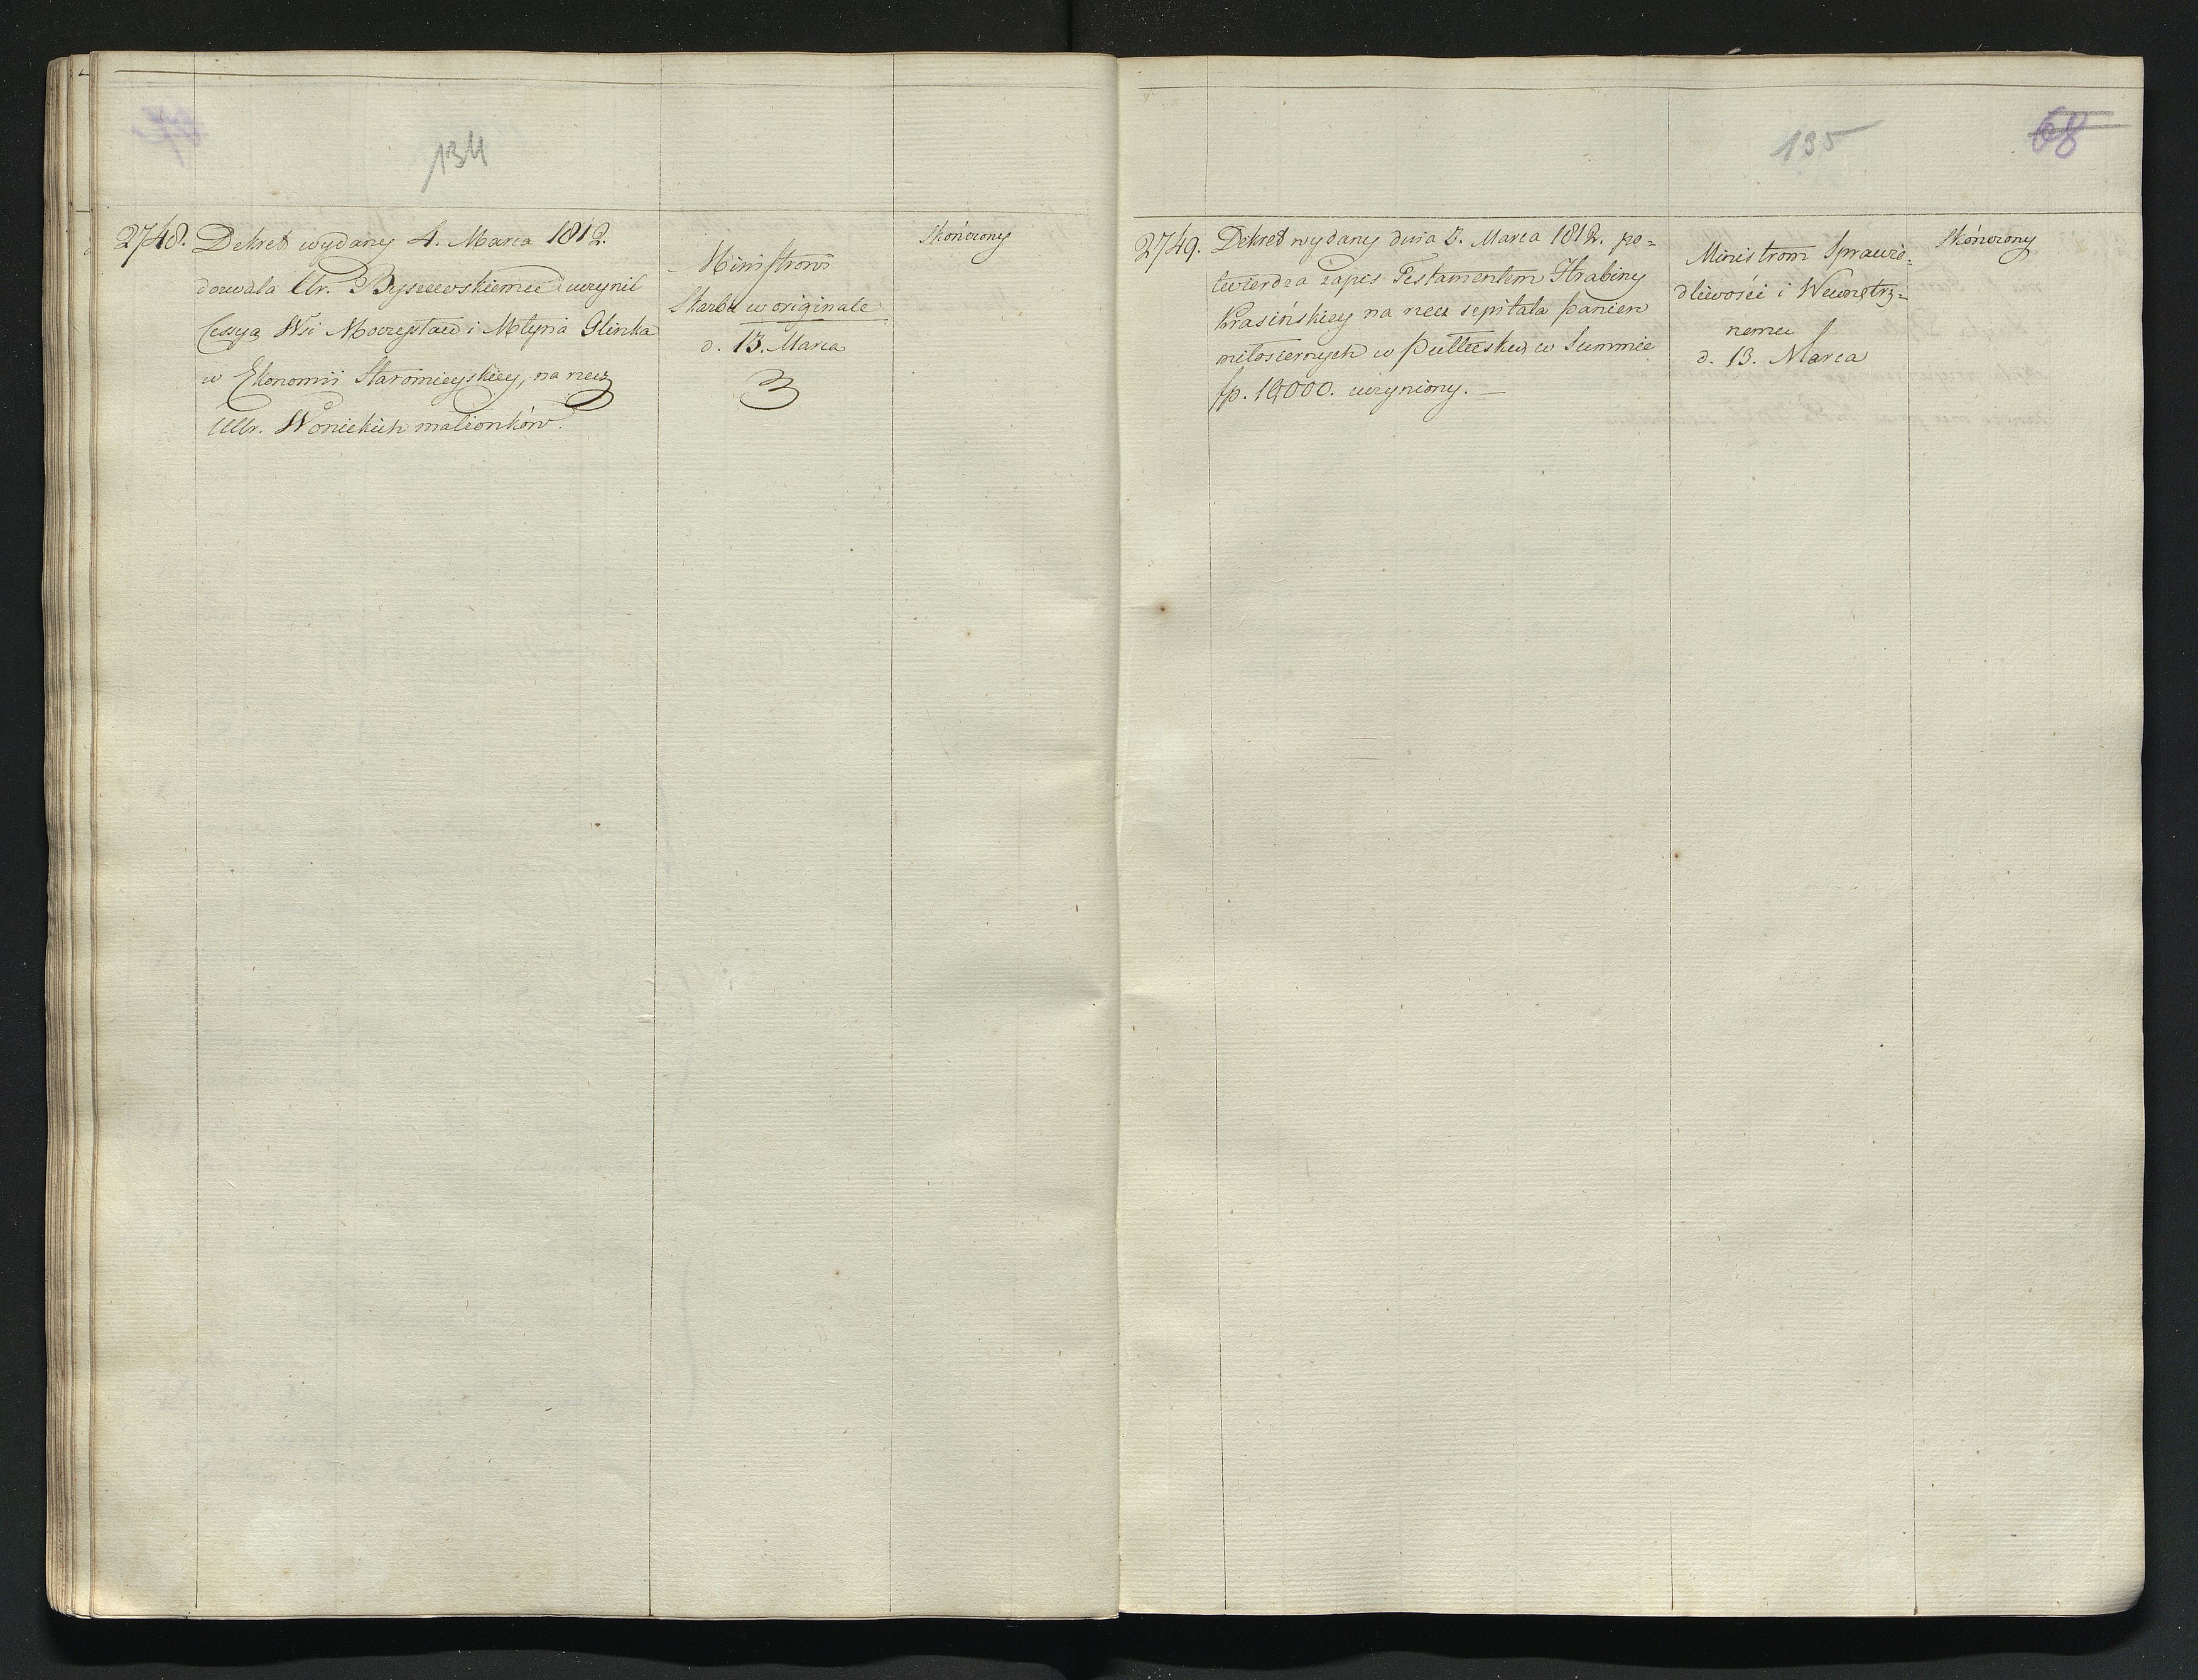 134
2748.
Dekret wydany 4. Marca 1812.
dozwala Ur. Byszewskiemu uczynić
Cessyą Wsi i Młyna Glinka
w Ekonomii Staromieyskiey, na rzecz
UUr. Wonickich małżonków.
Ministrowi
Skarbu w originale
d. 13. Marca
3
Skończony
135
68
2749.
Dekret wydany dnia 5. Marca 1812. po=
twierdza zapis Testamentem Hrabiny
Krasińskiey na rzecz szpitala panien
miłosiernych w Pułtusku w Summie
fp. 10,000. uczyniony. —
Ministrom Sprawie=
dliwości i Wewnętrz=
nemu
d. 13. Marca
Skończony